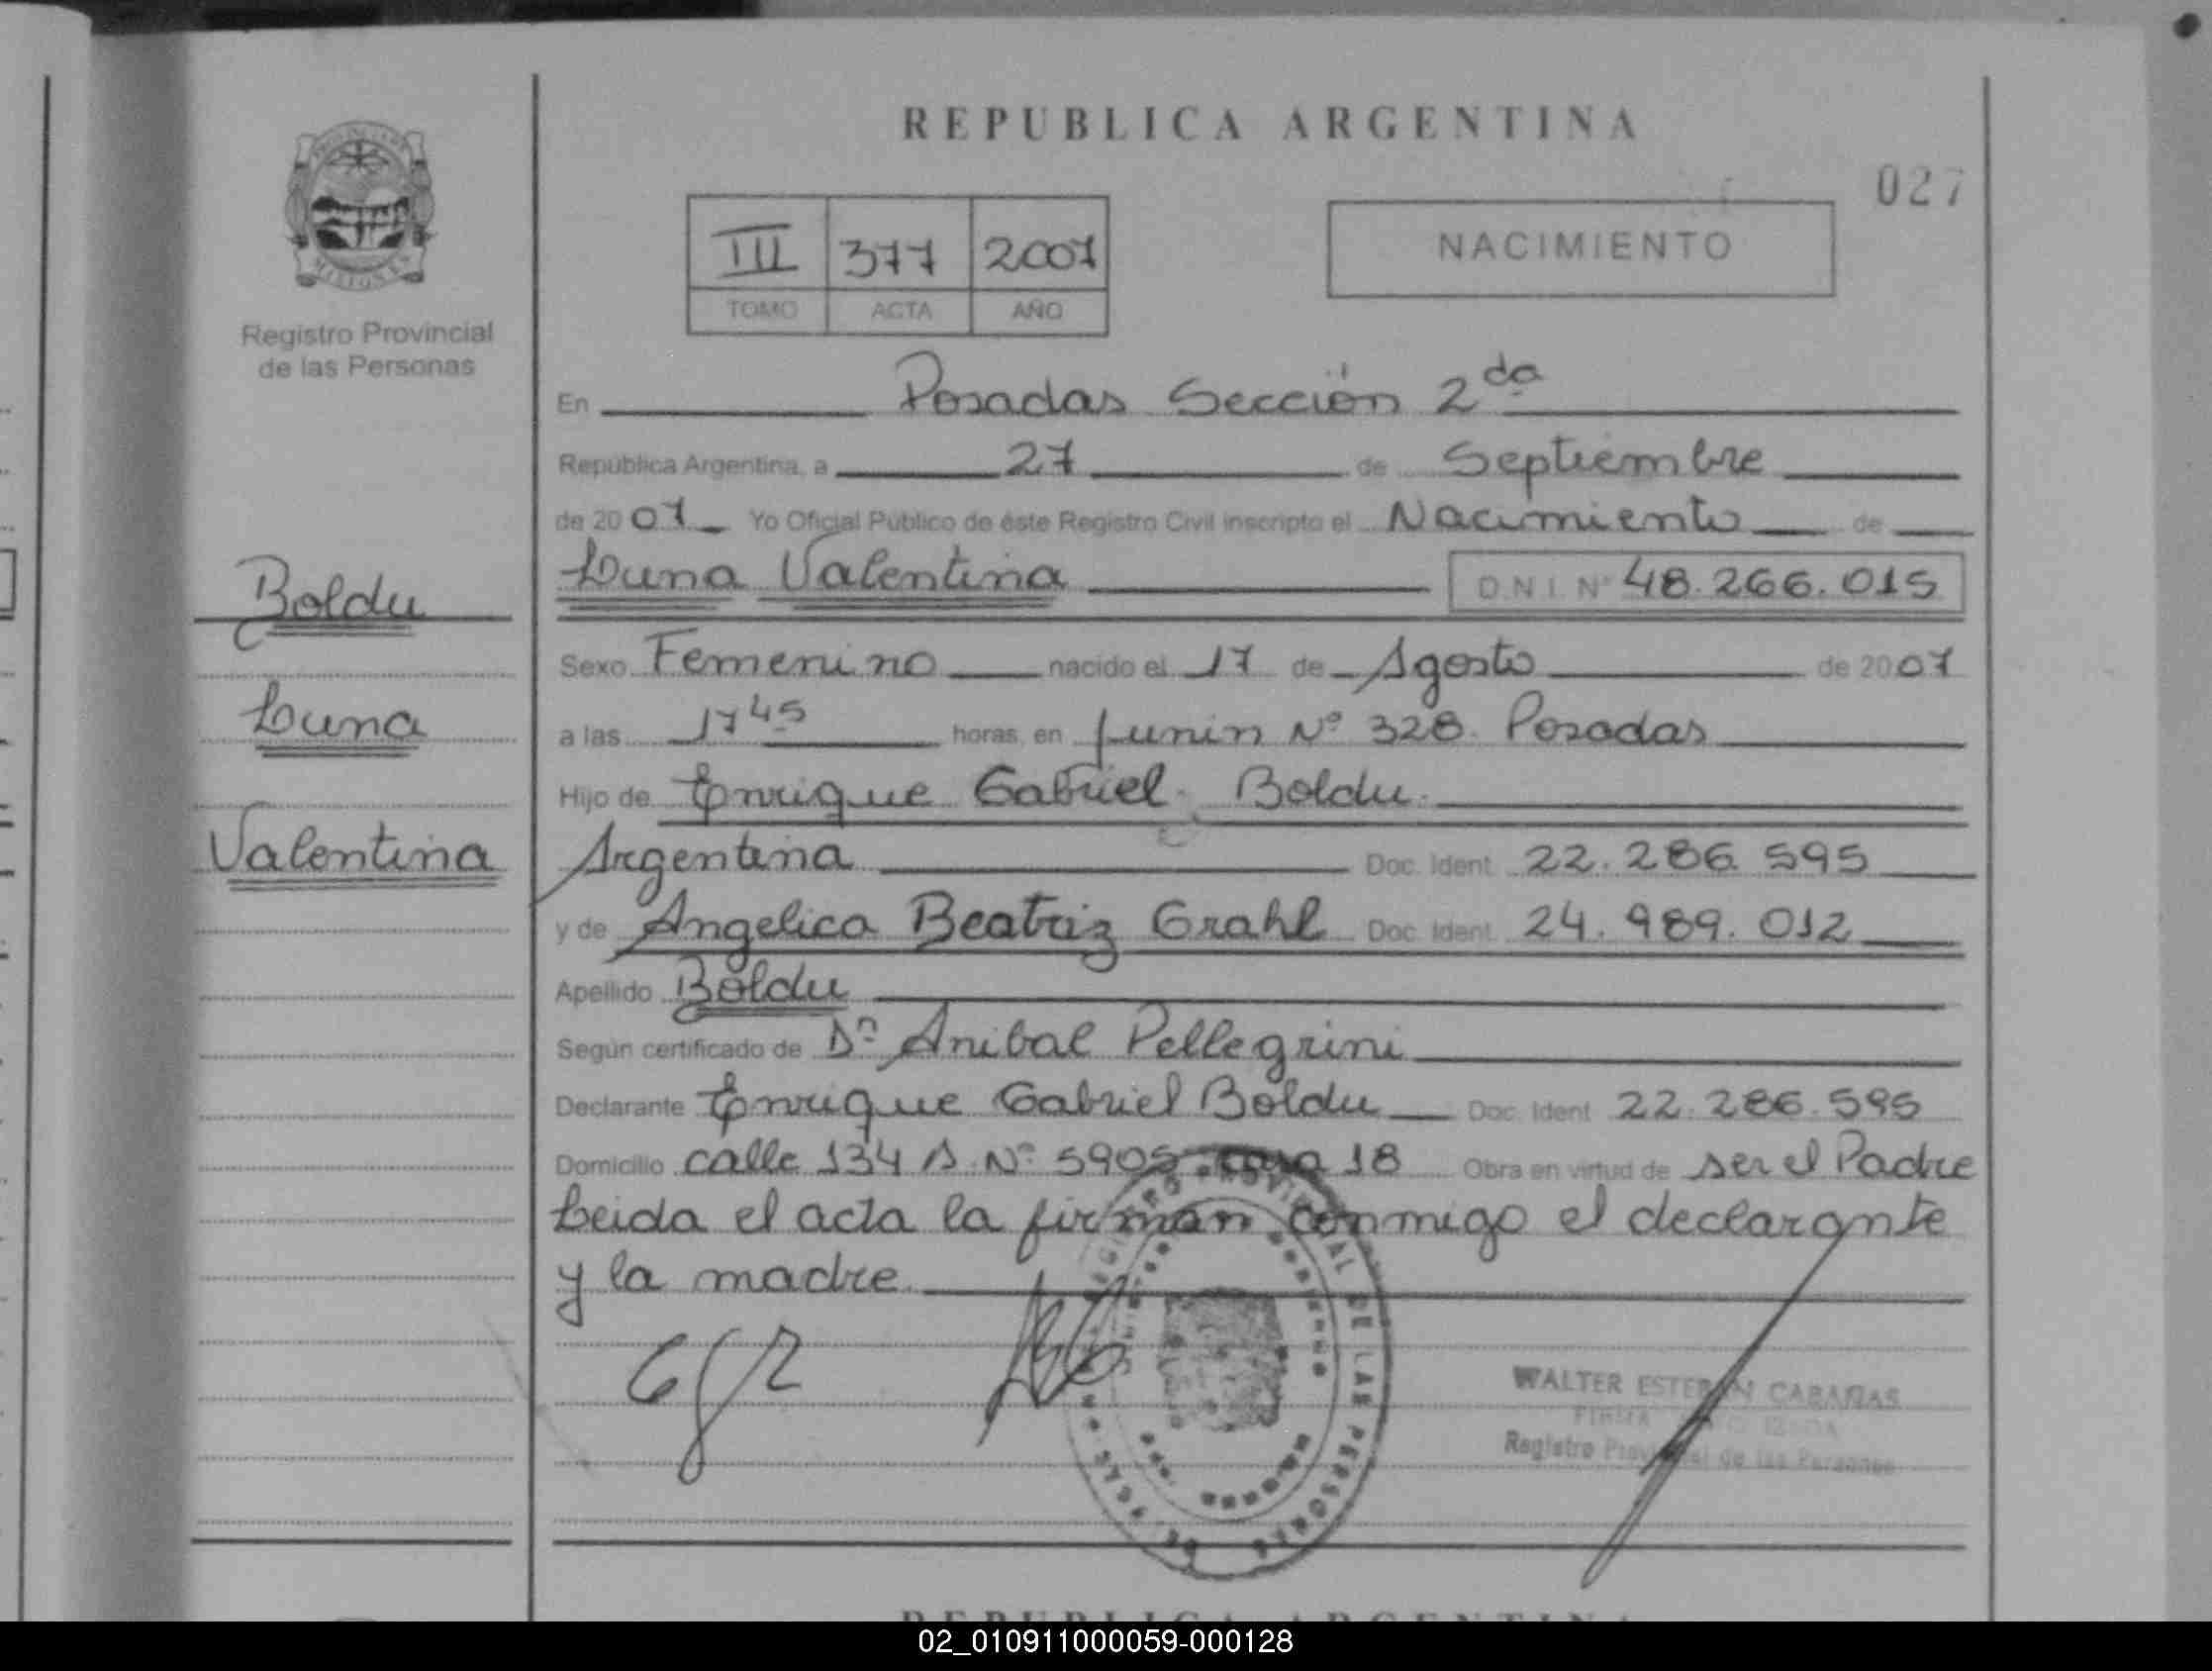 REPUBLICA ARGENTINA
027
III 377 2007
TOMO ACTA AÑO
NACIMIENTO
Registro Provincial
de las Personas
Boldu
Luna
Valentina
En Posadas Sección 2da
República Argentina, a 27 de Septiembre
de 2007 Yo Oficial Público de éste Registro Civil inscripto el Nacimiento de
Luna Valentina D.N.I. Nº 48.266.015
Sexo Femenino nacido el 17 de Agosto de 2007
a las 17 45 horas, en Junin Nº 328. Posadas
Hijo de Enrique Gabriel Boldu.
Argentina Doc. Ident. 22.286.595
y de Angelica Beatriz Grahl Doc. Ident. 24.989.012
Apellido Boldu
Según certificado de Dn Anibal Pellegrini
Declarante Enrique Gabriel Boldu Doc. Ident. 22.286.595
Domicilio calle 134 A Nº 5905 18 Obra en virtud de ser el Padre
Leida el acta la firman conmigo el declarante
y la madre.
REGISTRO PROVINCIAL DE LAS PERSONAS
WALTER ESTEBAN CABAÑAS
Registro Provincial de las Personas
REPUBLICA ARGENTINA
02_010911000059-000128